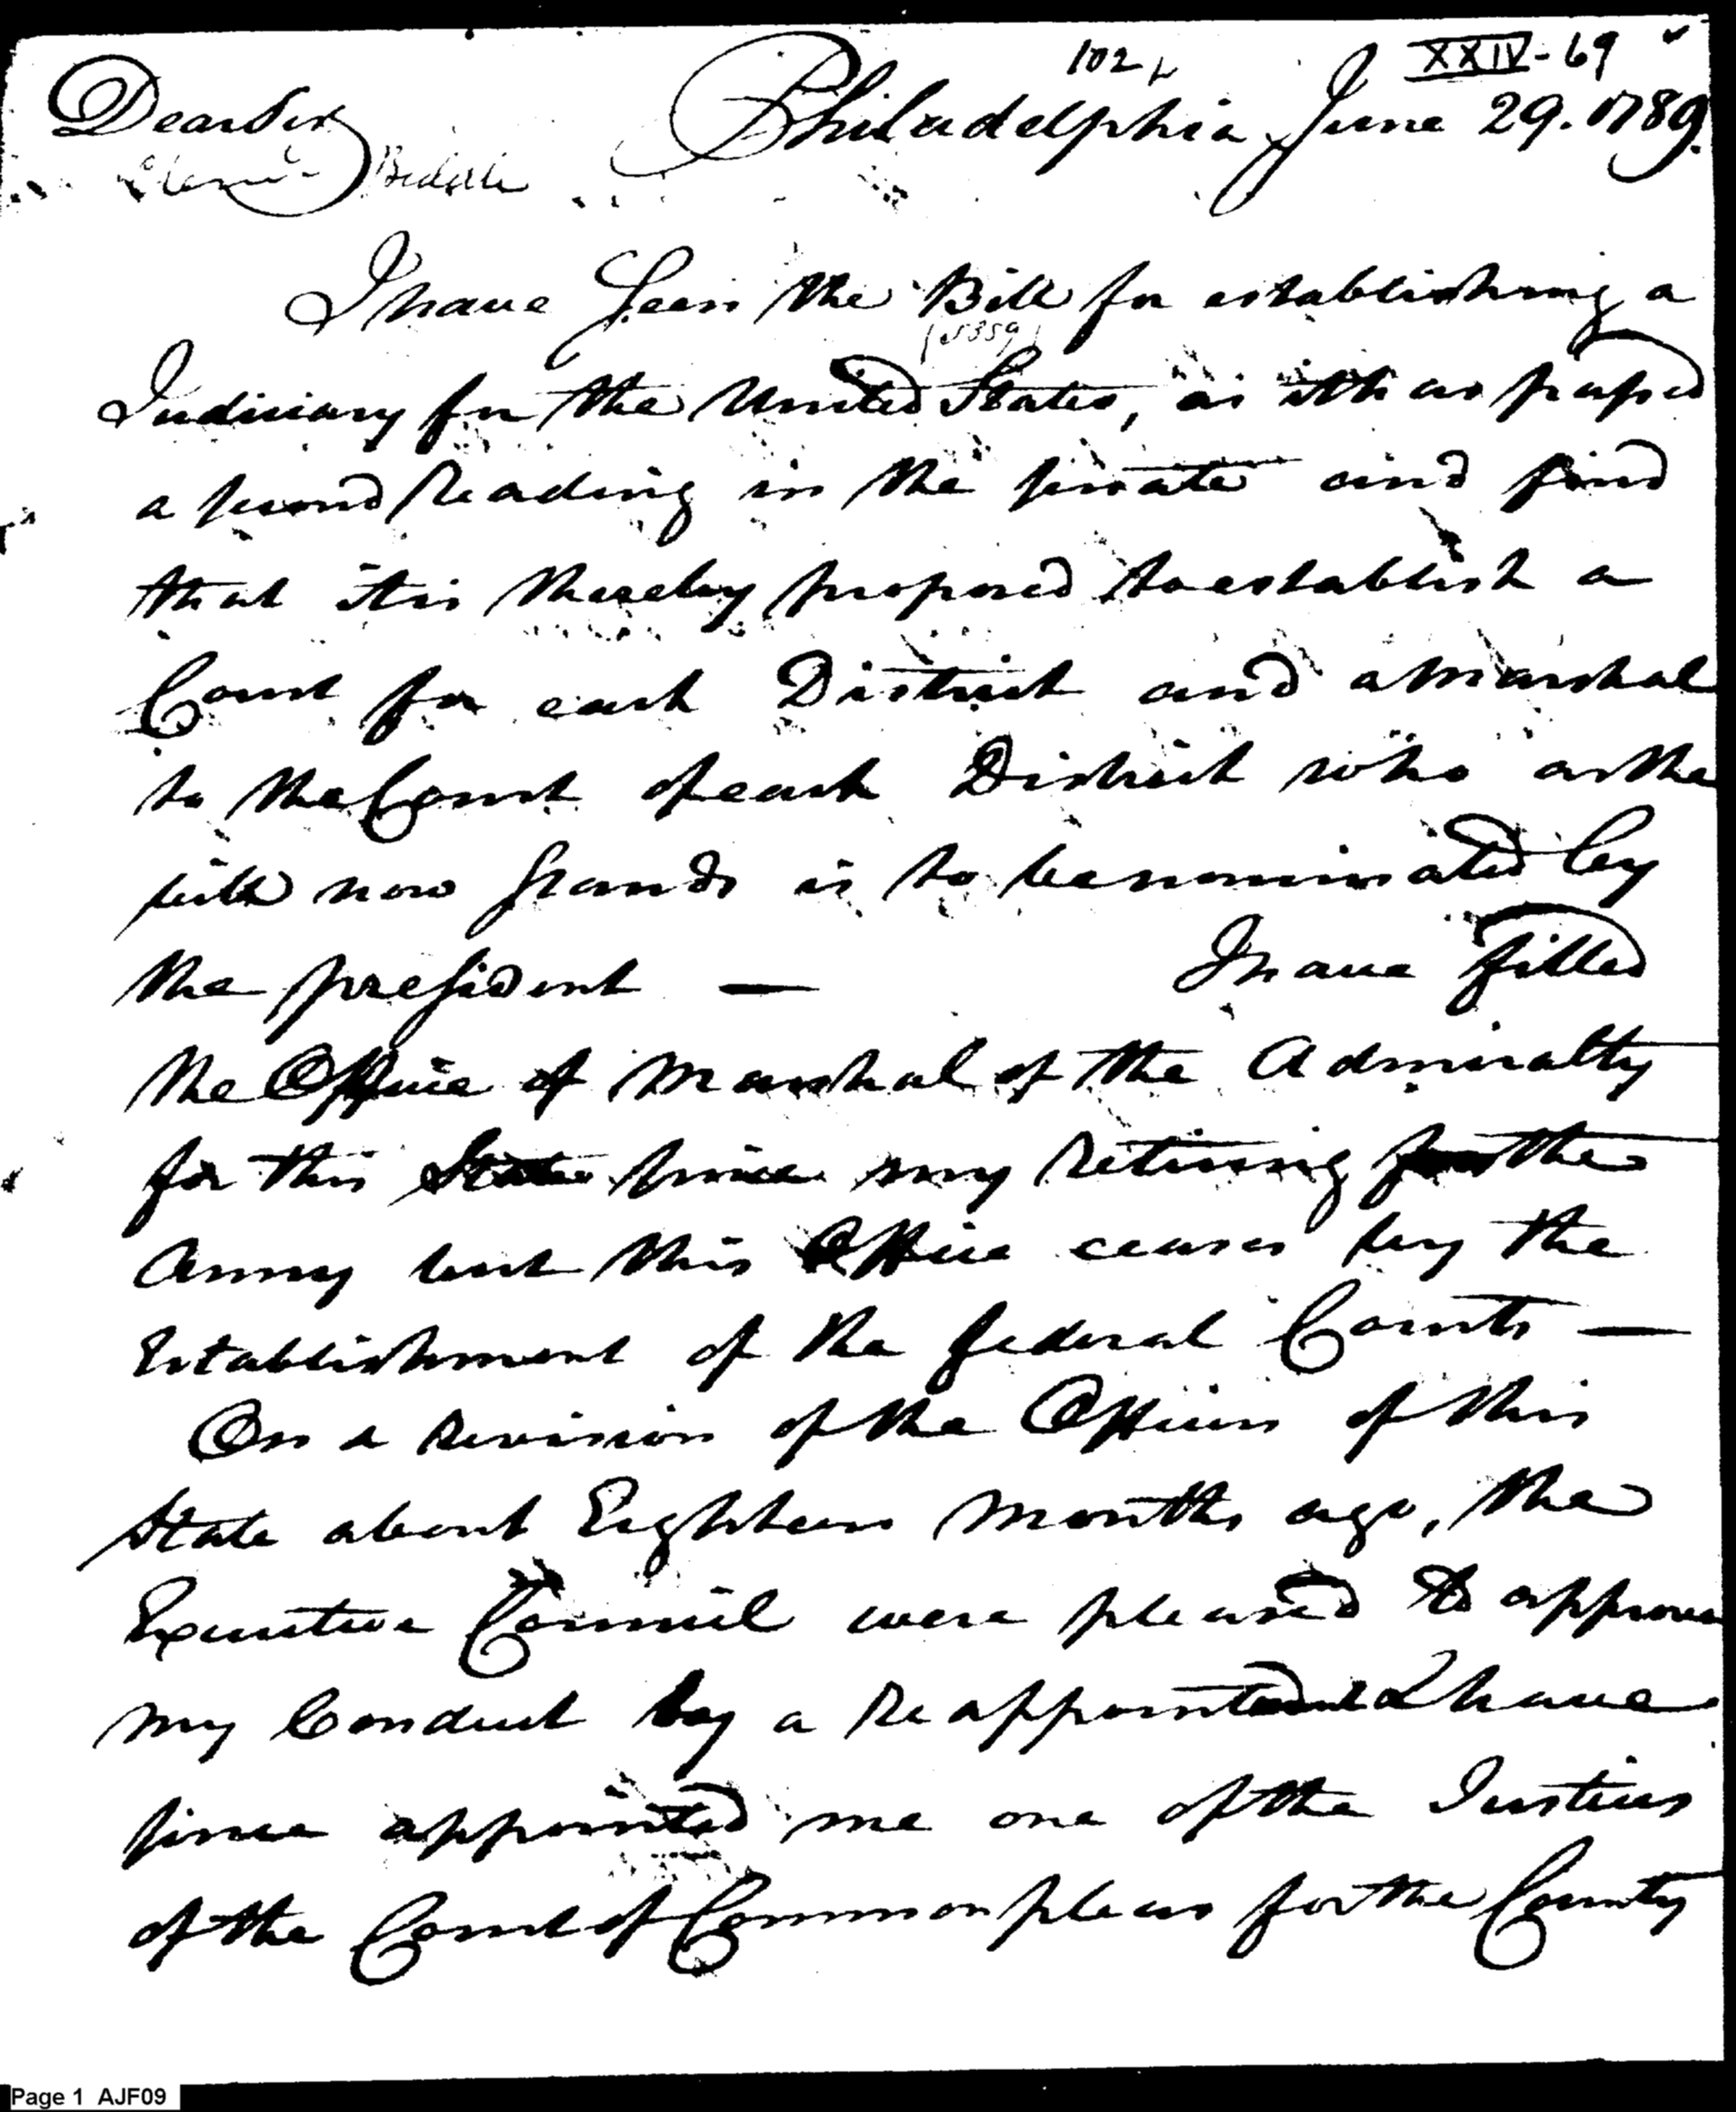 102
XXIV-69
Dear Sir Philadelphia June 29. 1789.
Biddle
I have Seen the Bill for establishing a
(5359)
Judiciary for the United States, as it has passed
a second Reading in the senate and find
that it is thereby proposed to establish a
Court for each District and a Marshal
to the Court of each District who as the
bill now stands is to be nominated by
the president — I have filled
the Office of Marshal of the Admiralty
for this State since my retiring from the
Army but this Office ceases by the
Establishment of the federal Courts —
On a Revision of the Officers of this
State about Eighteen Months ago, the
Executive Council were pleased to approve
my Conduct by a Reappointment & have
since appointed me one of the Justices
of the Court of Common pleas for the County
Page 1 AJF09